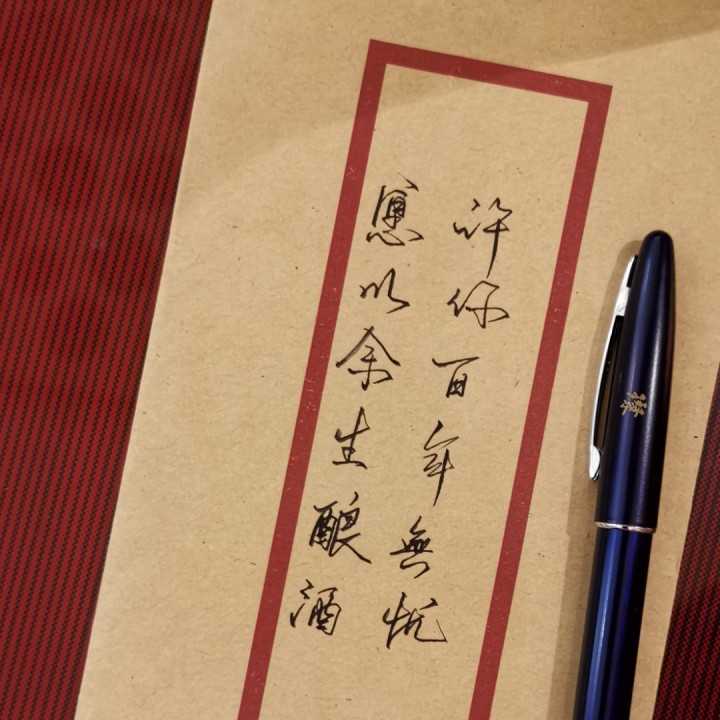 许你百年無忧
愿以余生酿酒